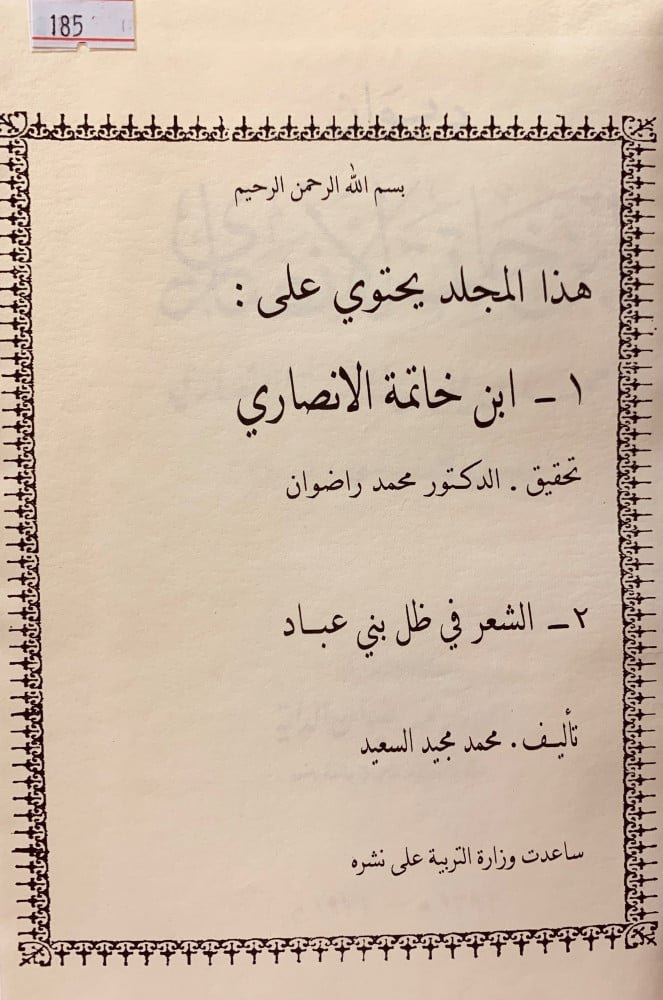 185
بسم الله الرحمن الرحيم
هذا المجلد يحتوي على :
١ ـ ابن خاتمة الانصاري
تحقيق . الدكتور محمد راضوان
٢ ـ الشعر في ظل بني عبـاد
تأليـف . محمد مجيد السعيد
ساعدت وزارة التربية على نشره